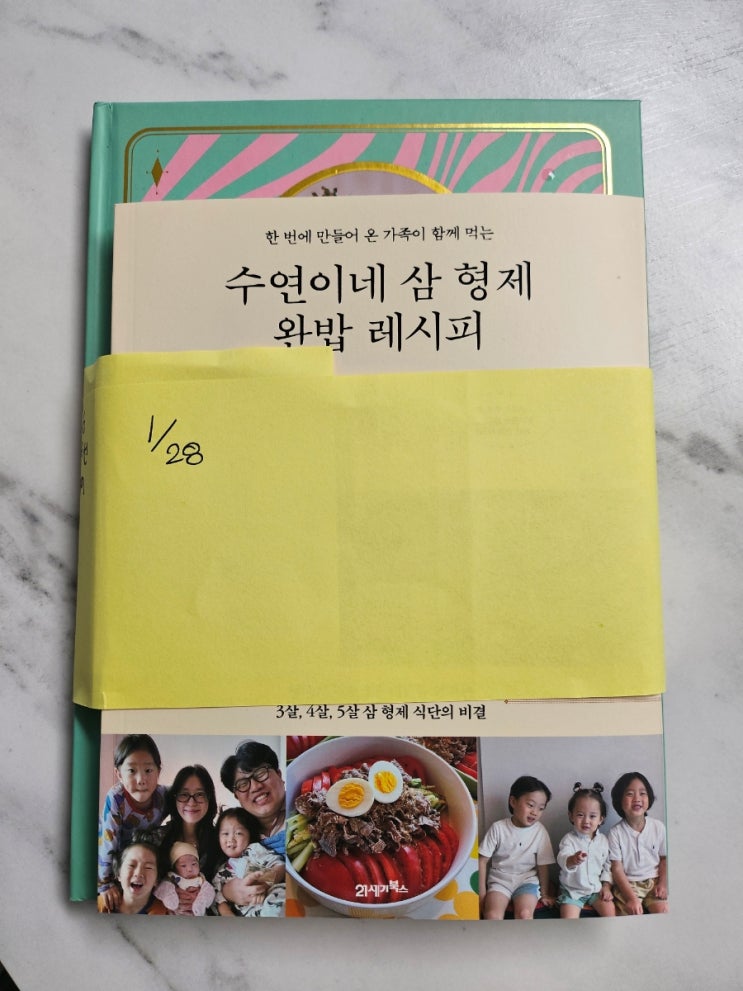 한 번에 만들어 온 가족이 함께 먹는
수연이네 삼 형제
완밥 레시피
1/28
3살, 4살, 5살 삼 형제 식단의 비결
21세기북스